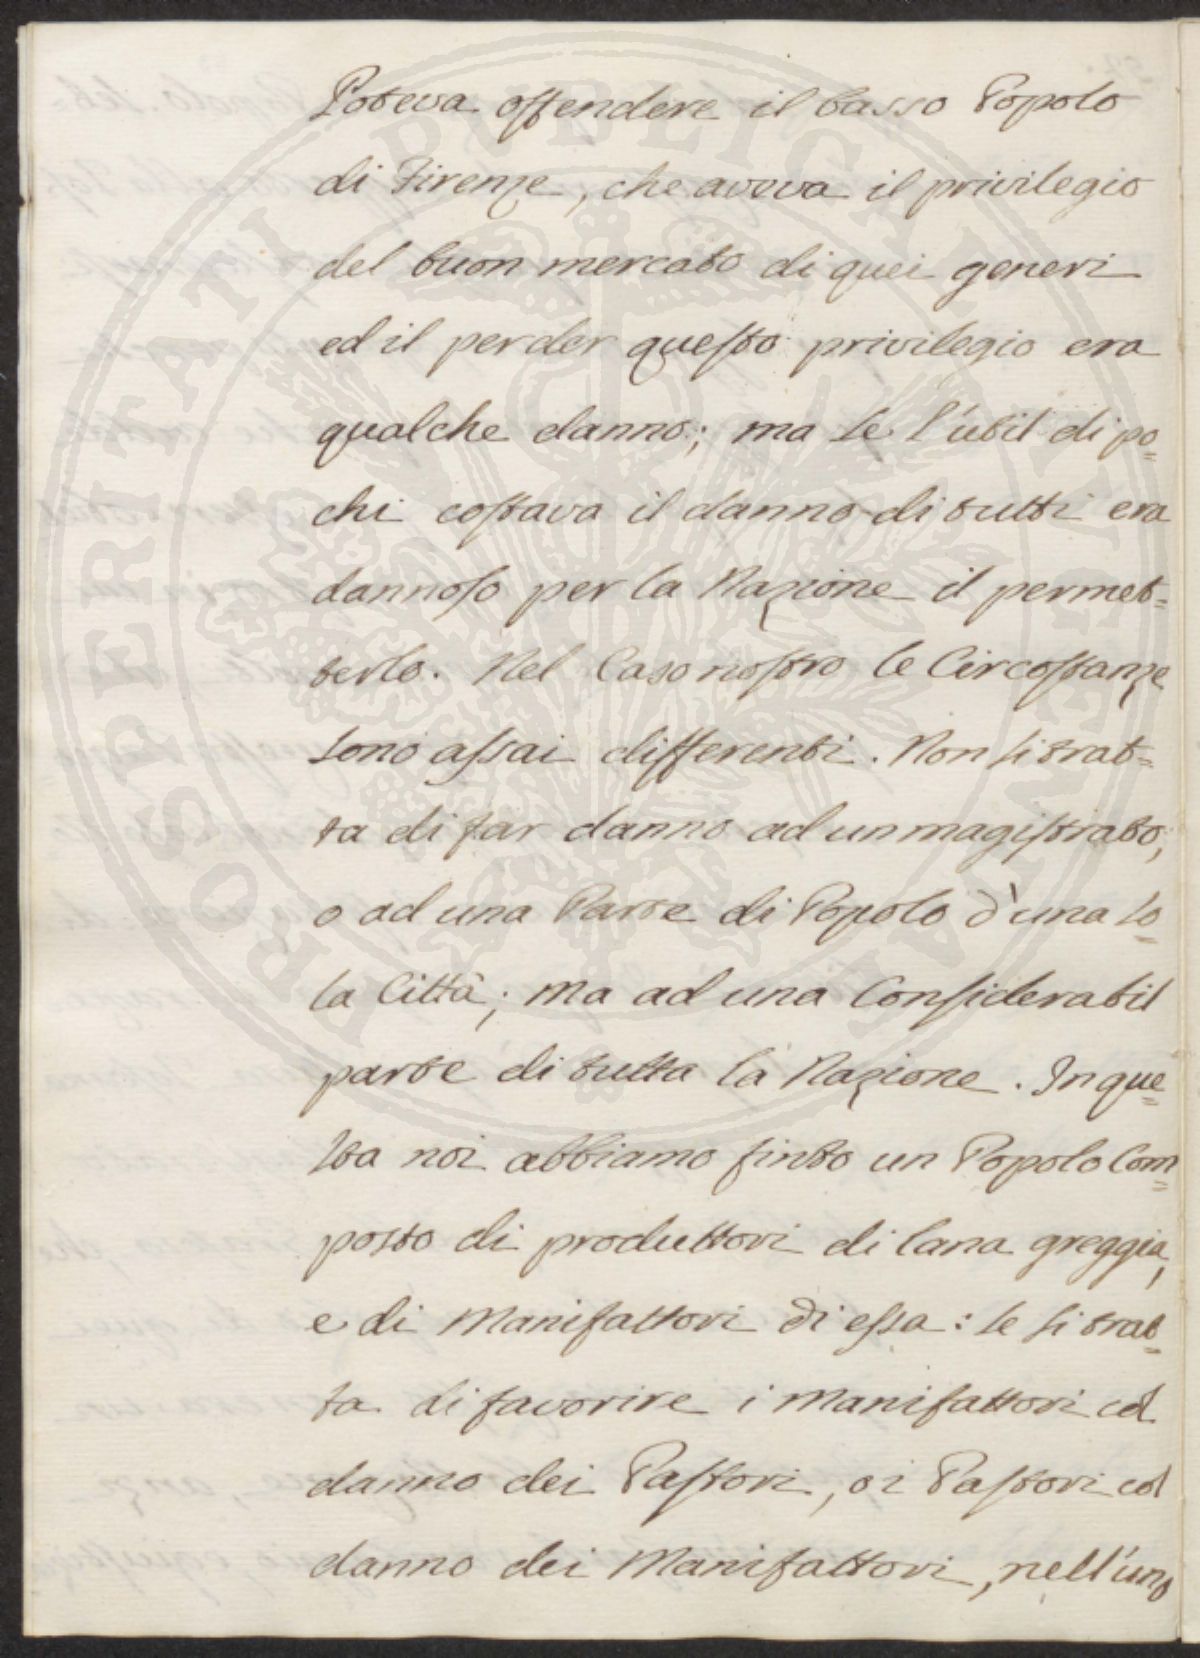 Poteva offendere il basso Popolo
di Firenze, che aveva il privilegio
del buon mercato di quei generi
ed il perder questo privilegio era
qualche danno; ma se l'util di po=
chi costava il danno di tutti era
dannoso per la Nazione il permet=
terlo. Nel Caso nostro le Circostanze
sono assai differenti. Non si trat=
ta di far danno ad un magistrato,
o ad una Parte di Popolo d'una so=
la Città; ma ad una Considerabil
parte di tutta la Nazione. In que=
sta noi abbiamo finto un Popolo Com=
posto di produttori di lana greggia,
e di Manifattori di essa: se si trat=
ta di favorire i Manifattori col
danno dei Pastori, o i Pastori col
danno dei Manifattori, nell'uno
PROSPERITATI PUBLICAE AUGENDAE